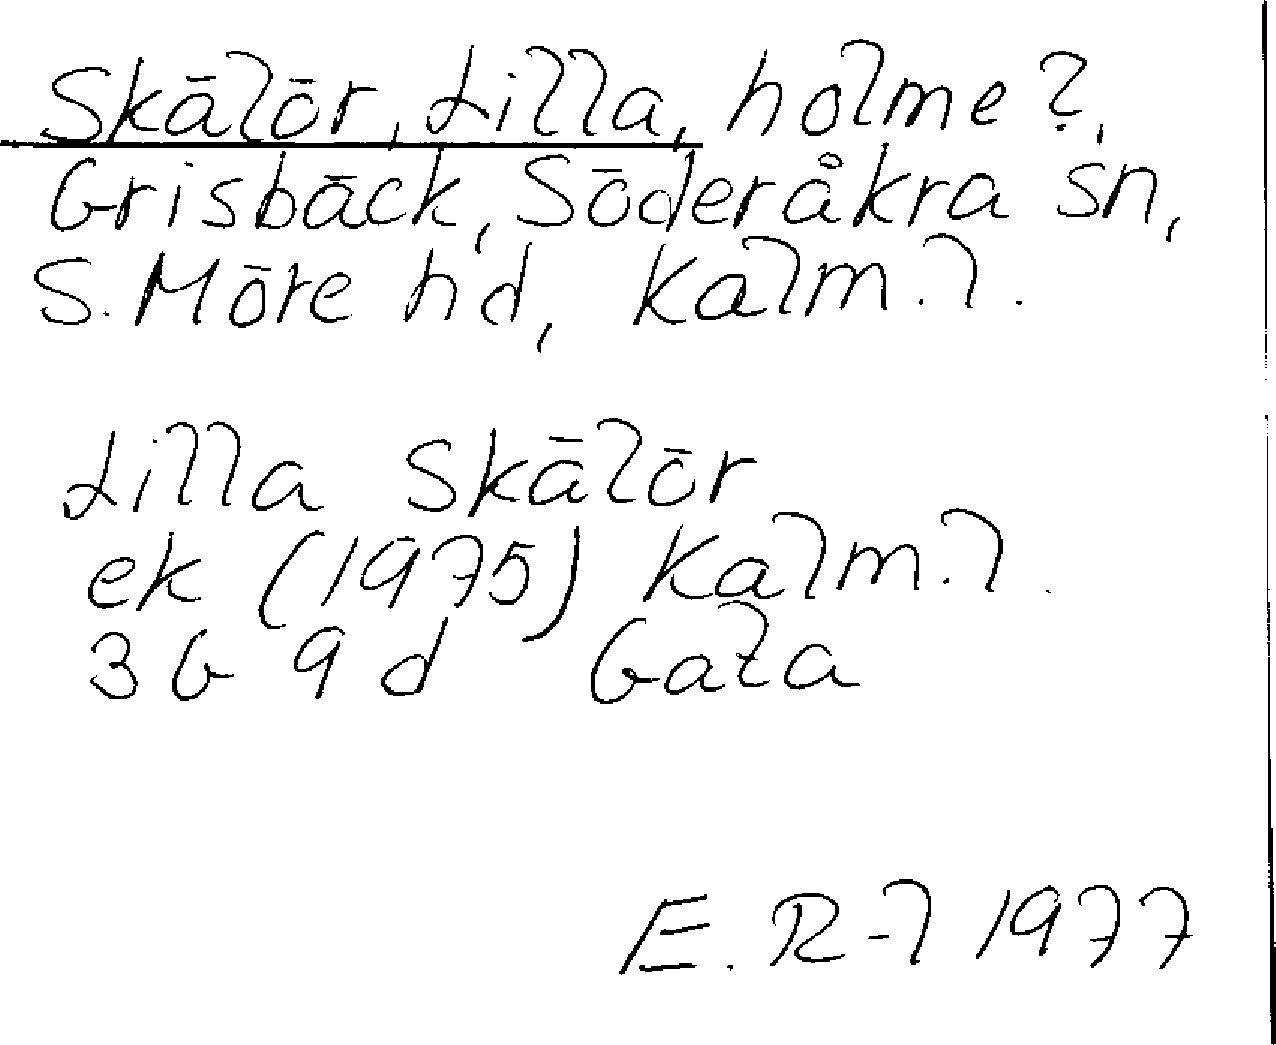 Skälör, Lilla, holme?,
Grisbäck, Söderåkra sn,
S. Möre hd, Kalm. l.
Lilla Skälör
ek (1975) Kalm. l.
3G 9d Gata
E. R-l 1977